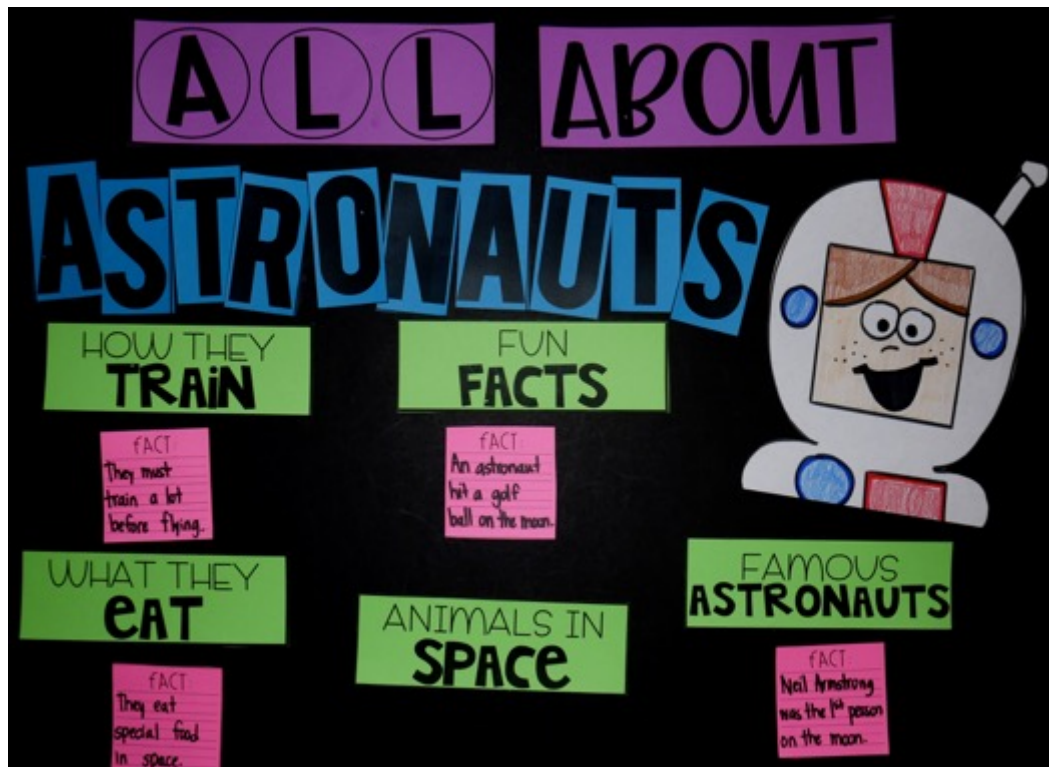 ALL ABOUT
ASTRONAUTS
HOW THEY
TRAiN
FACT:
They must
train a lot
before flying.
FUN
FACTS
FACT:
An astronaut
hit a golf
ball on the moon.
WHAT THEY
eAT
FACT:
They eat
special food
in space.
ANIMALS IN
SPACe
FAMOUS
ASTRONAUTS
FACT:
Neil Armstrong
was the 1st person
on the moon.